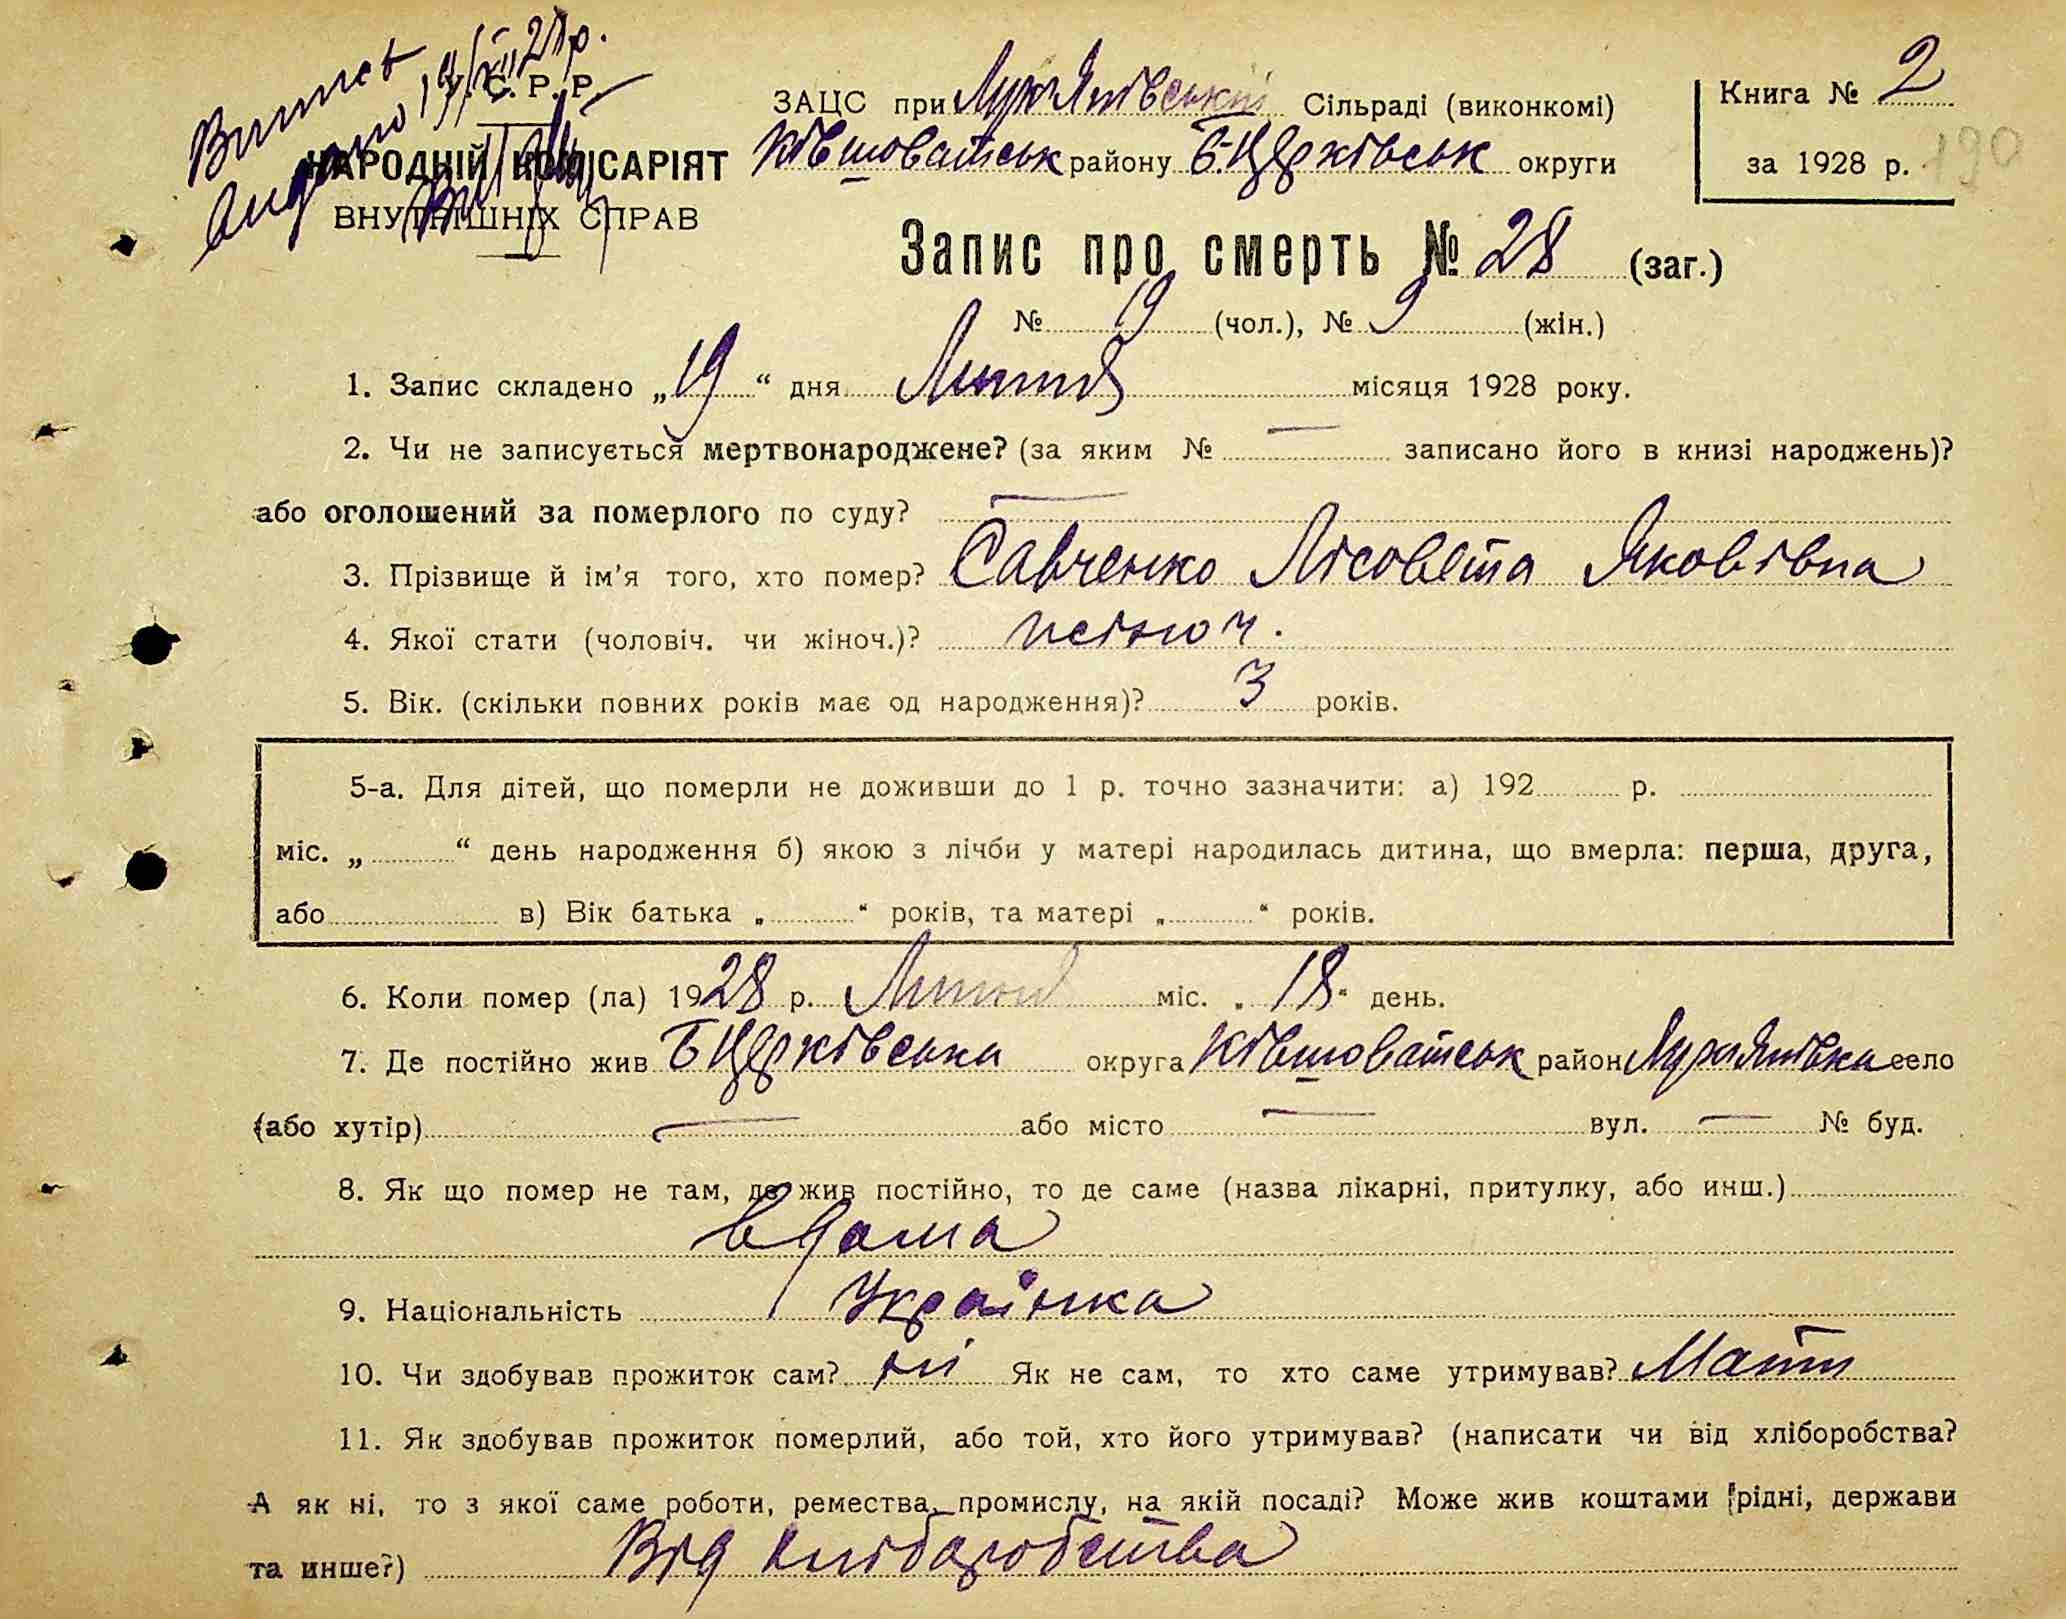 Випис
видано 19/XII 28 р.
У. С. Р. Р.
НАРОДНІЙ КОМІСАРІЯТ
ВНУТРІШНІХ СПРАВ
ЗАЦС при Лук'янівській Сільраді (виконкомі)
Ківшоватськ району Б-Церківськ округи
Книга № 2
за 1928 р.
190
Запис про смерть № 28 (заг.)
№ 19 (чол.), № 9 (жін.)
1. Запис складено „19“ дня Липня місяця 1928 року.
2. Чи не записується мертвонароджене? (за яким № — записано його в книзі народжень)?
або оголошений за померлого по суду? —
3. Прізвище й ім'я того, хто помер? Савченко Лісовета Яковівна
4. Якої стати (чоловіч. чи жіноч.)? жіноч.
5. Вік. (скільки повних років має од народження)? 3 років.
5-а. Для дітей, що померли не доживши до 1 р. точно зазначити: а) 192 р.
міс. „ “ день народження б) якою з лічби у матері народилась дитина, що вмерла: перша, друга,
або в) Вік батька „ “ років, та матері „ “ років.
6. Коли помер (ла) 1928 р. Липня міс. „18“ день.
7. Де постійно жив Б Церківська округа Ківшоватськ район Лук'янівка село
(або хутір) — або місто — вул. — № буд.
8. Як що помер не там, де жив постійно, то де саме (назва лікарні, притулку, або инш.)
вдома
9. Національність Українка
10. Чи здобував прожиток сам? ні Як не сам, то хто саме утримував? Мати
11. Як здобував прожиток померлий, або той, хто його утримував? (написати чи від хліборобства?
А як ні, то з якої саме роботи, ремества, промислу, на якій посаді? Може жив коштами рідні, держави
та инше?) Від хліборобства